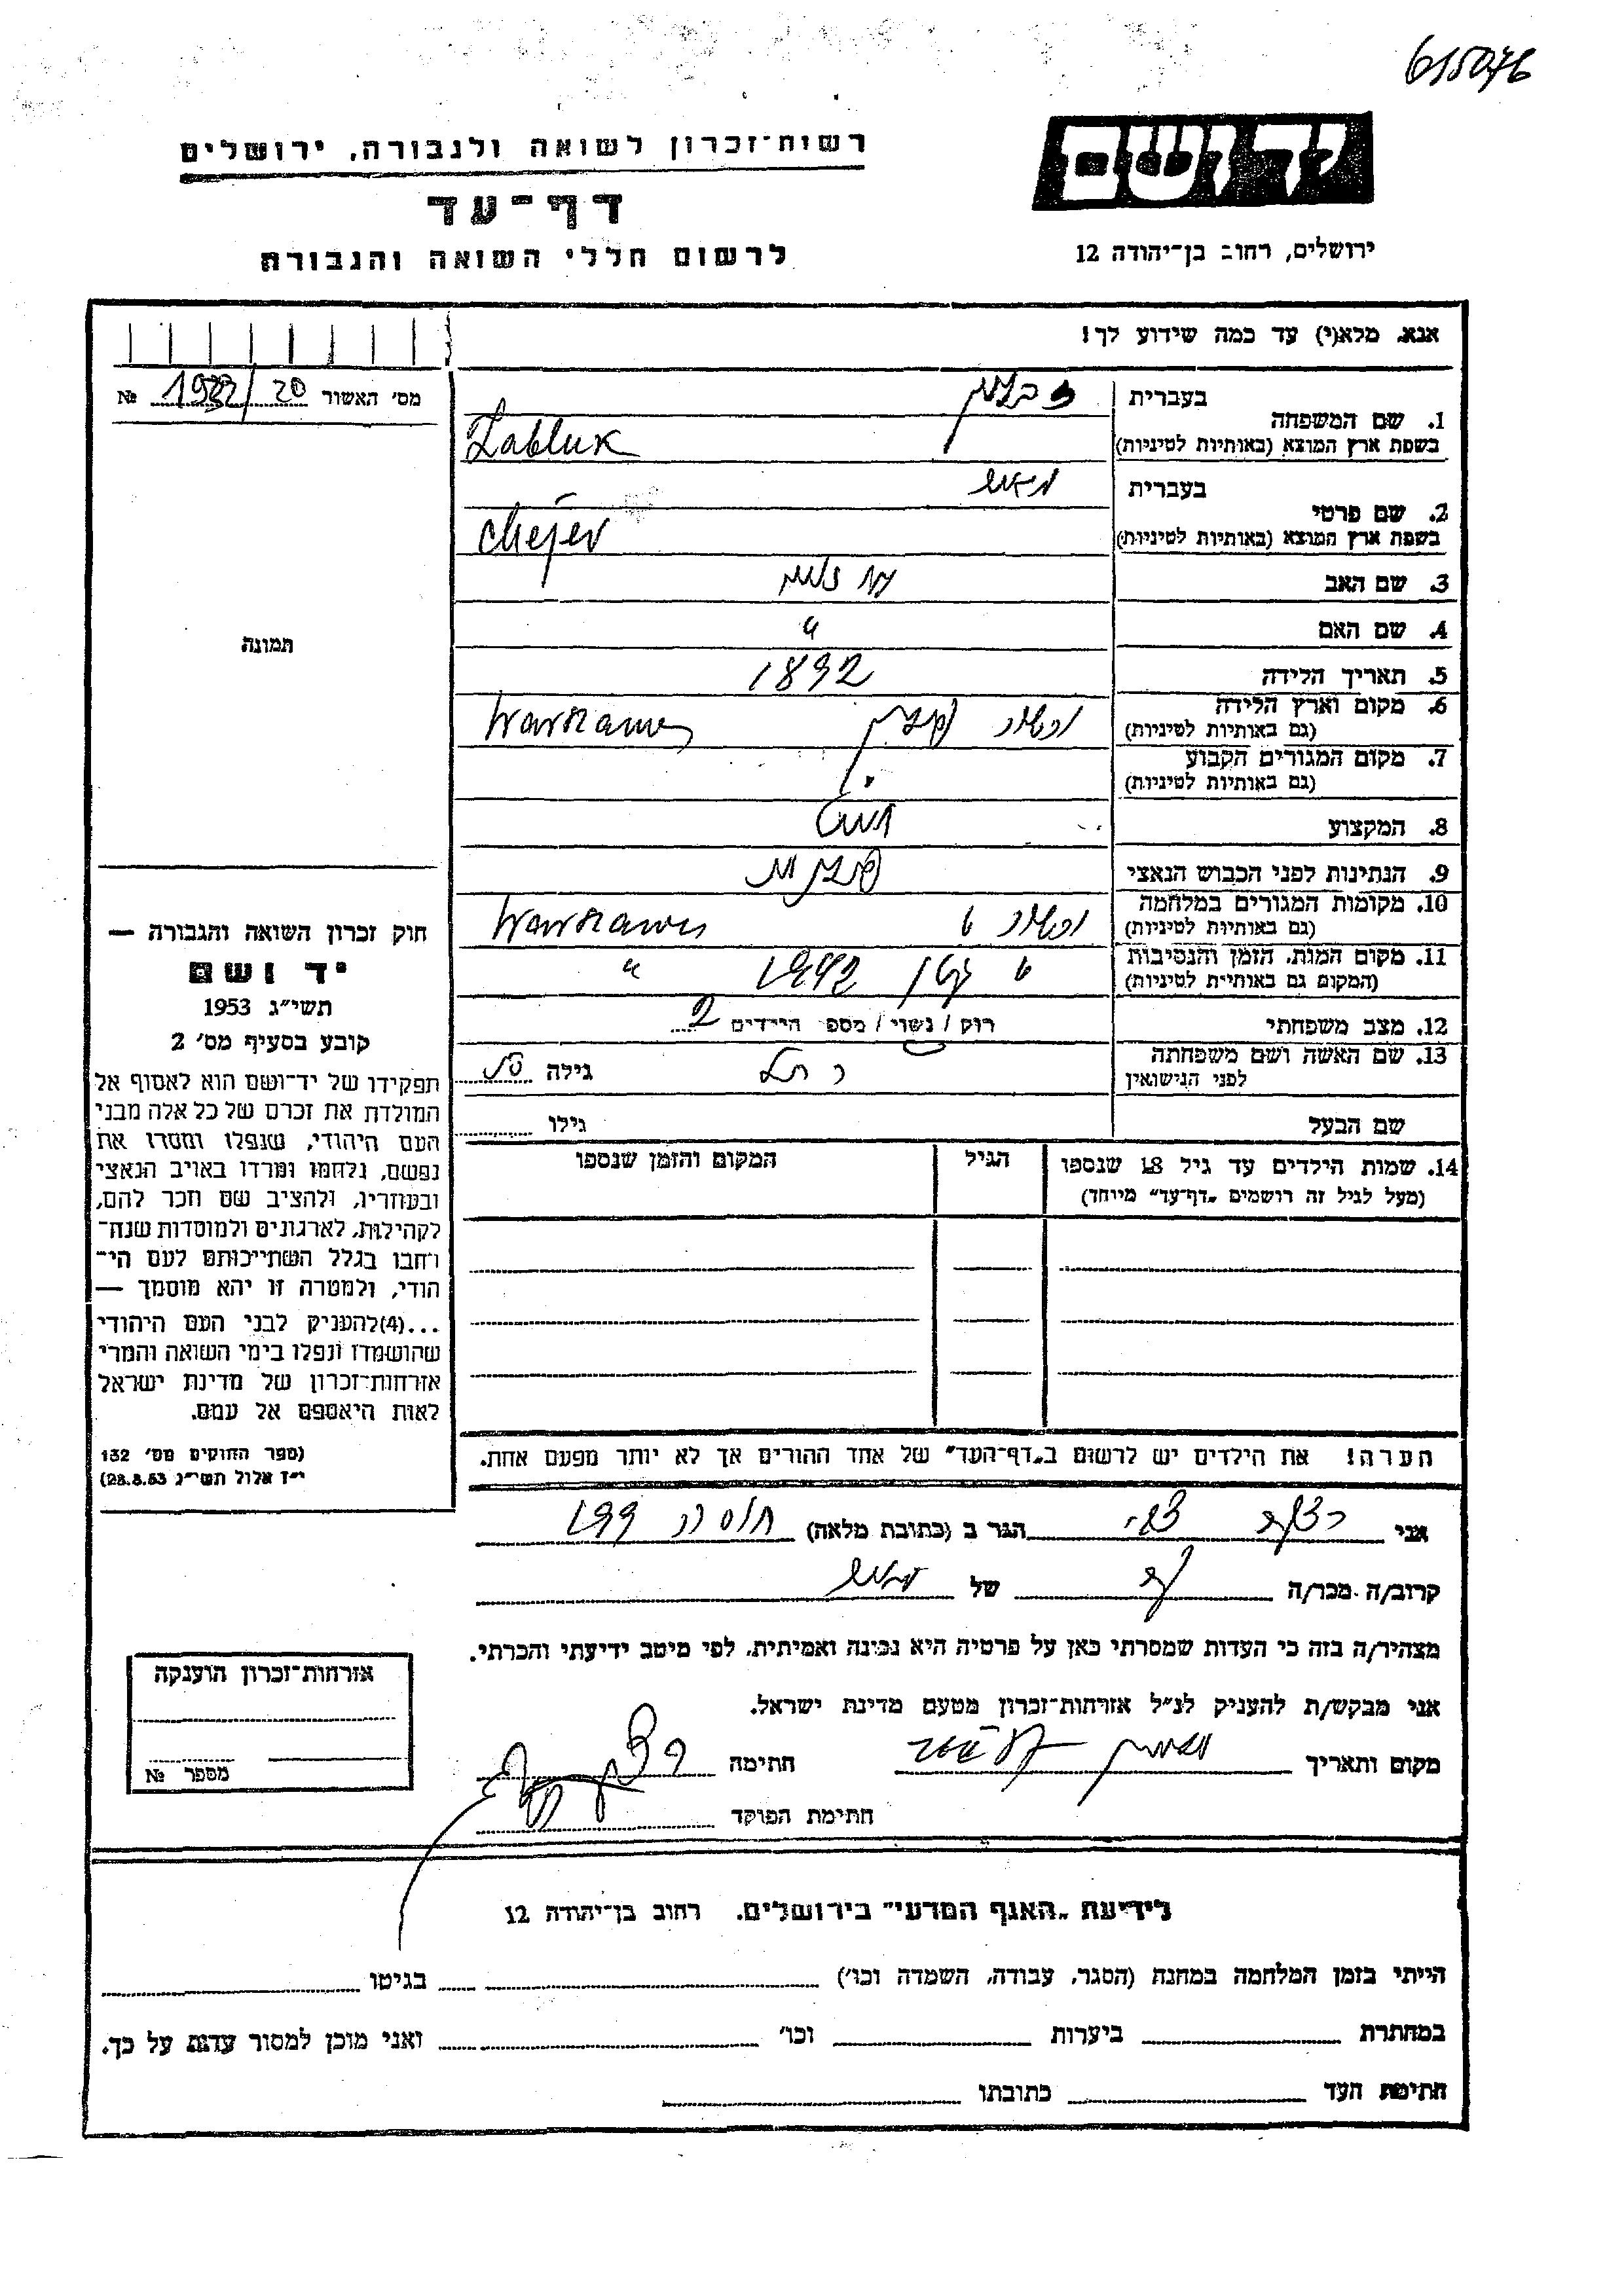 615076
רשות־זכרון לשואה ולגבורה, ירושלים
יד ושם
דף־עד
לרשום חללי השואה והגבורה
ירושלים, רחוב בן־יהודה 12
אנא, מלא(י) עד כמה שידוע לך!
מס׳ האשור 1922/20 №
1. שם המשפחה
בעברית
בשפת ארץ המוצא (באותיות לטיניות) Zabluk
2. שם פרטי
בעברית
בשפת ארץ המוצא (באותיות לטיניות)
3. שם האב
4. שם האם "
5. תאריך הלידה 1892
6. מקום וארץ הלידה
(גם באותיות לטיניות) ורשה פולין Warszawa
7. מקום המגורים הקבוע
(גם באותיות לטיניות)
8. המקצוע
9. הנתינות לפני הכבוש הנאצי פולנית
10. מקומות המגורים במלחמה
(גם באותיות לטיניות) ורשה Warszawa
11. מקום המות, הזמן והנסיבות
(המקום גם באותיות לטיניות) 1942 "
12. מצב משפחתי רוק / נשוי / מספ׳ הילדים 2
13. שם האשה ושם משפחתה
לפני הנישואין רחל גילה
שם הבעל גילו
14. שמות הילדים עד גיל 18 שנספו
(מעל לגיל זה רושמים „דף־עד״ מייוחד)
הגיל
המקום והזמן שנספו
הערה! את הילדים יש לרשום ב„דף־העד״ של אחד ההורים אך לא יותר מפעם אחת.
תמונה
חוק זכרון השואה והגבורה —
יד ושם
תשי״ג 1953
קובע בסעיף מס׳ 2
תפקידו של יד־ושם הוא לאסוף אל
המולדת את זכרם של כל אלה מבני
העם היהודי, שנפלו ומסרו את
נפשם, נלחמו ומרדו באויב הנאצי
ובעוזריו, ולהציב שם וזכר להם,
לקהילות, לארגונים ולמוסדות שנח־
רבו בגלל השתייכותם לעם הי־
הודי, ולמטרה זו יהא מוסמך —
...(4)להעניק לבני העם היהודי
שהושמדו ונפלו בימי השואה והמרי
אזרחות־זכרון של מדינת ישראל
לאות היאספם אל עמם.
(ספר החוקים מס׳ 132
י״ז אלול תשי״ג 28.8.53)
אני הגר ב (כתובת מלאה) 199
קרוב/ה מכר/ה של
מצהיר/ה בזה כי העדות שמסרתי כאן על פרטיה היא נכונה ואמיתית, לפי מיטב ידיעתי והכרתי.
אני מבקש/ת להעניק לנ״ל אזרחות־זכרון מטעם מדינת ישראל.
מקום ותאריך חתימה
חתימת הפוקד
אזרחות־זכרון הוענקה
מספר №
לידיעת „האגף המדעי״ בירושלים, רחוב בן־יהודה 12
הייתי בזמן המלחמה במחנה (הסגר, עבודה, השמדה וכו׳) בגיטו
במחתרת ביערות וכו׳ ואני מוכן למסור עדות על כך.
חתימת העד כתובתו